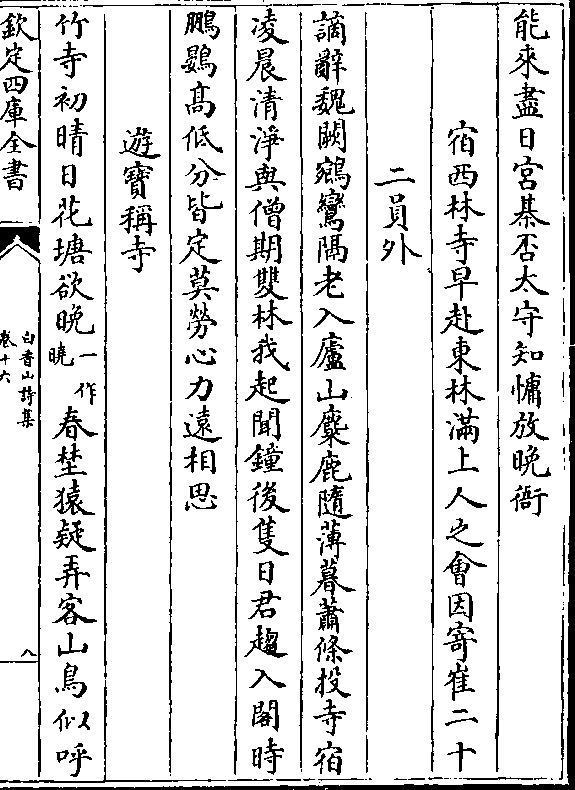 能來盡日宫棊否太守知慵放晚衙
宿西林寺早赴東林滿上人之會因寄崔二十
二員外
謫辭魏闕鵷鸞隔老入廬山麋鹿隨薄暮蕭條投寺宿
凌晨清淨與僧期雙林我起聞鐘後隻日君趨入閤時
鵬鷃髙低分皆定莫勞心力遠相思
遊寶稱寺
竹寺初晴日花塘欲晚一作曉春埜猿疑弄客山鳥似呼
欽定四庫全書
白香山詩集
卷十六
八